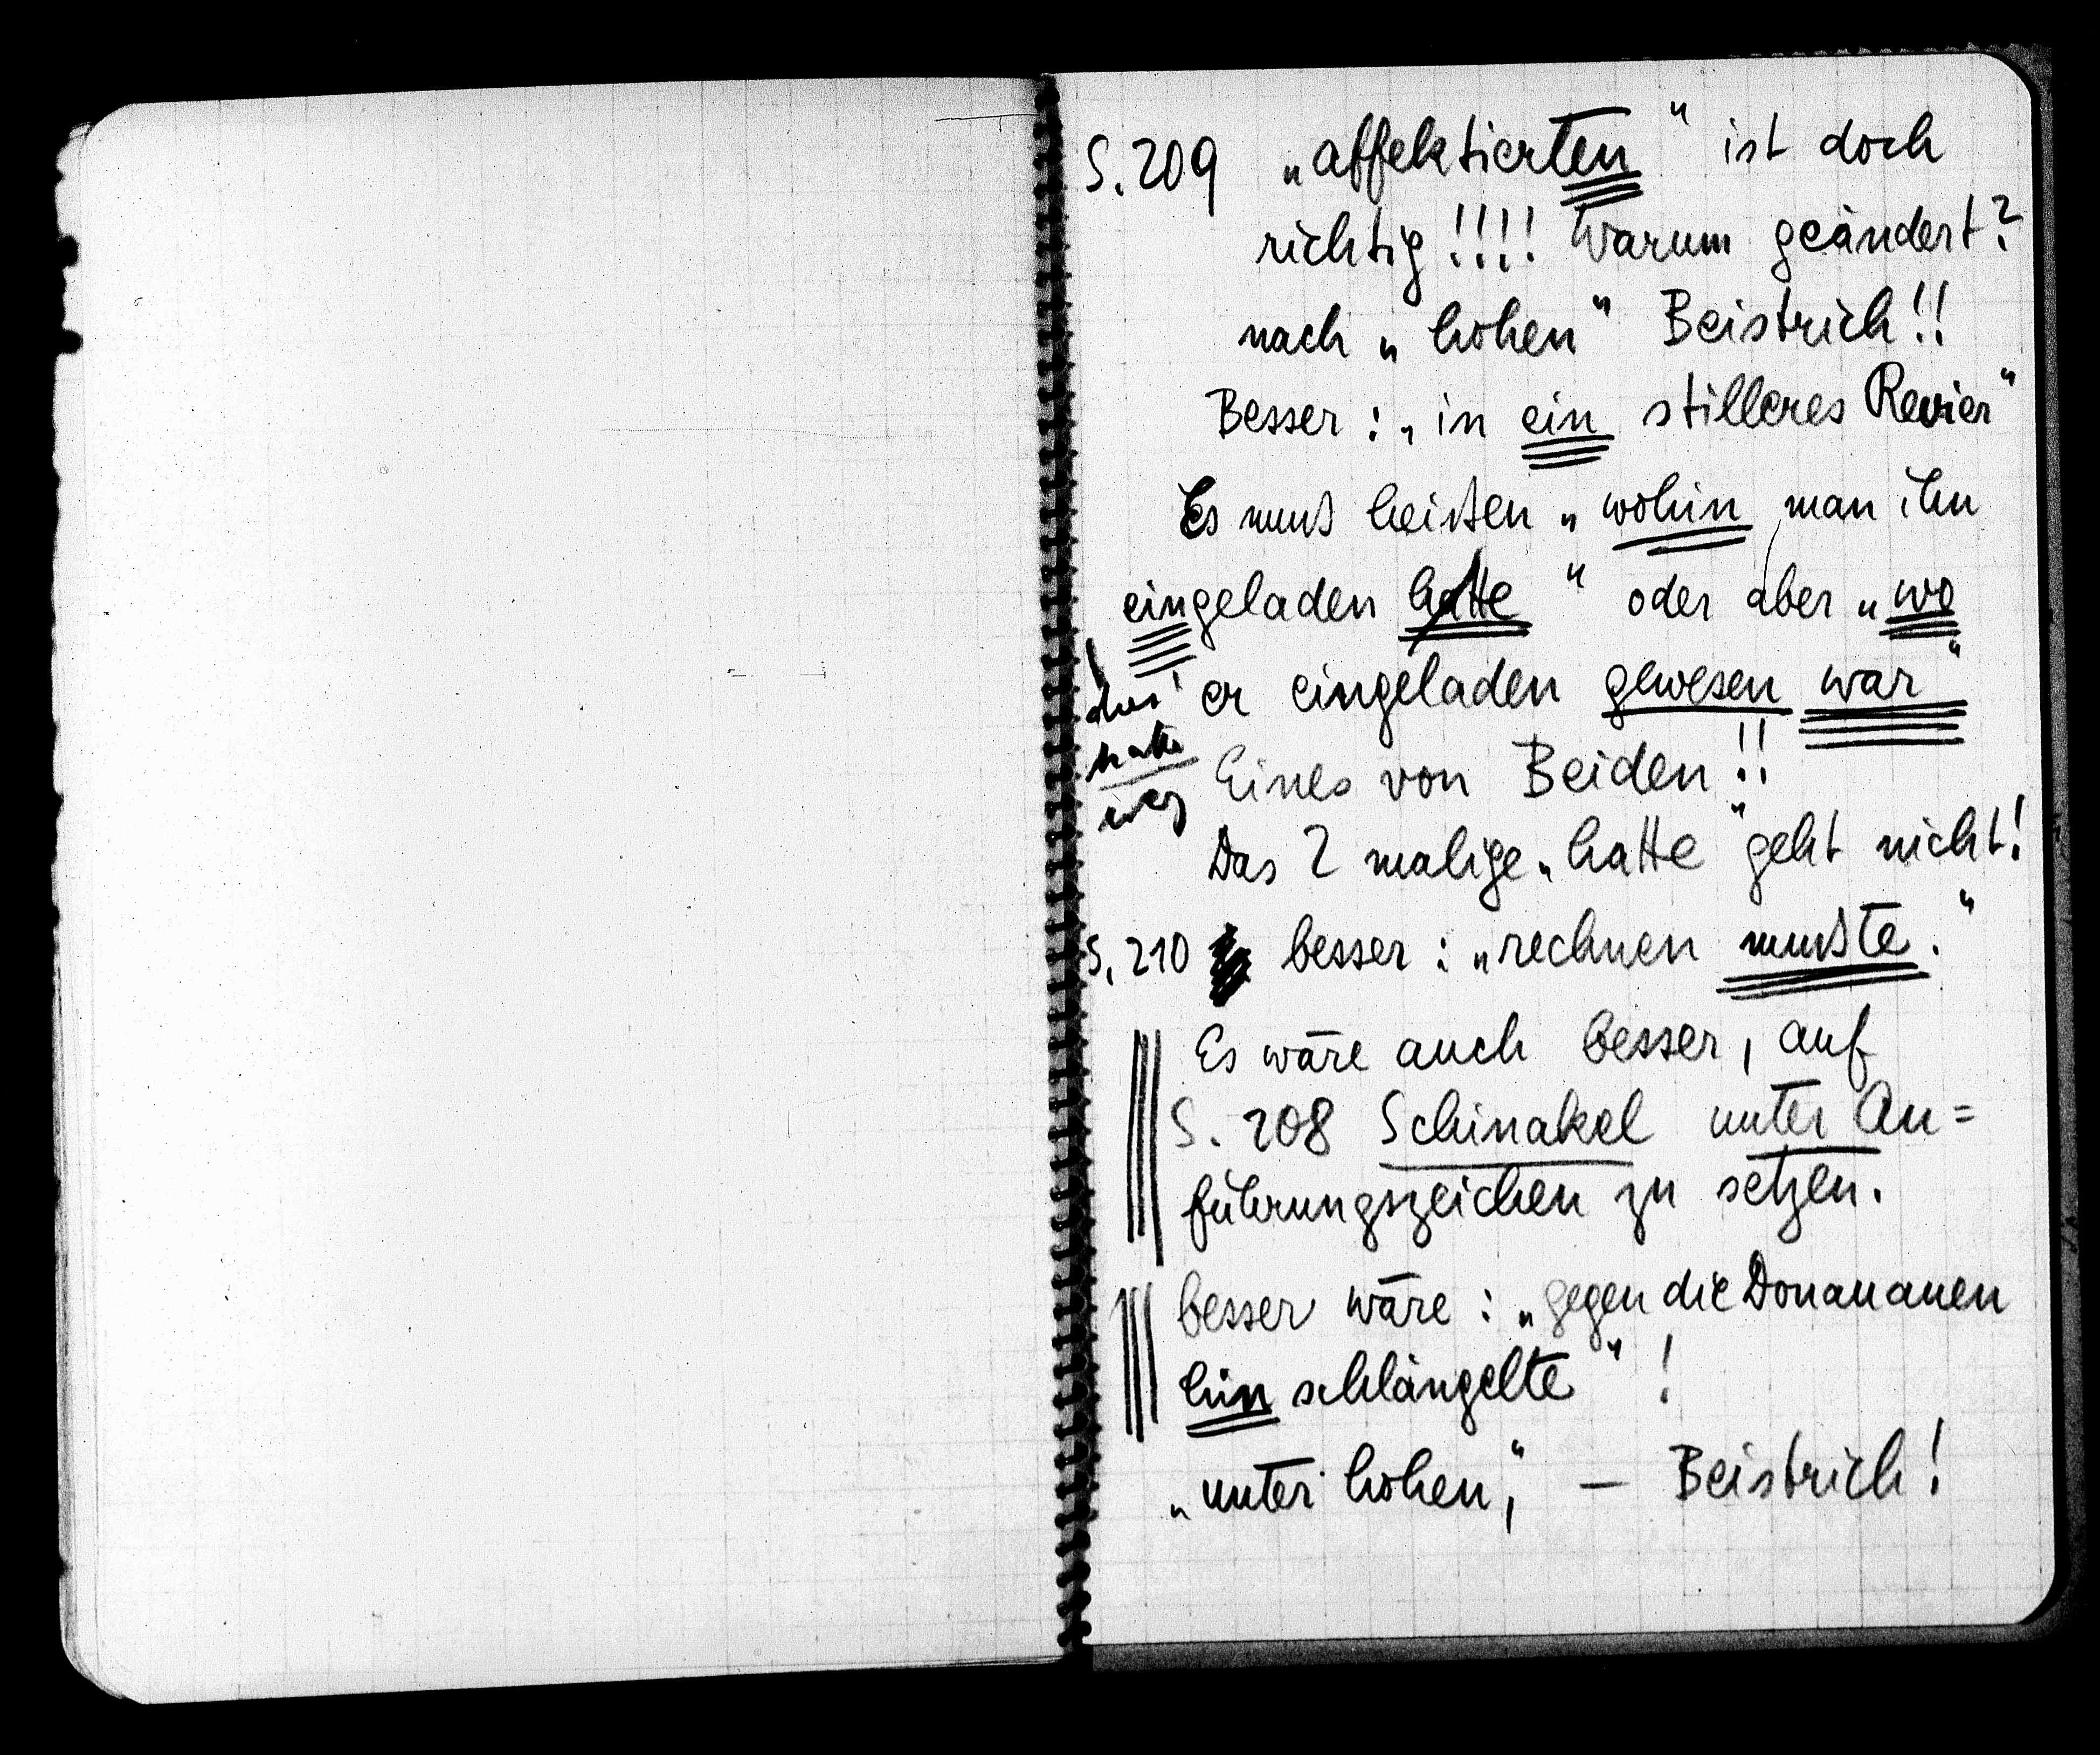 S. 209 „affektierten" ist doch
richtig!!!! Warum geändert?
nach „hohen" Beistrich!!
Besser: „in ein stilleres Revier"
Es muß heißen „wohin man ihn
eingeladen hatte" oder aber „wo
er eingeladen gewesen war"
hatte
weg
Eines von Beiden!!
Das 2 malige „hatte" geht nicht!
S. 210 besser: „rechnen mußte."
Es wäre auch besser, auf
S. 208 Schinakel unter An=
führungszeichen zu setzen.
besser wäre: „gegen die Donauauen
hin schlängelte"!
„unter hohen," – Beistrich!